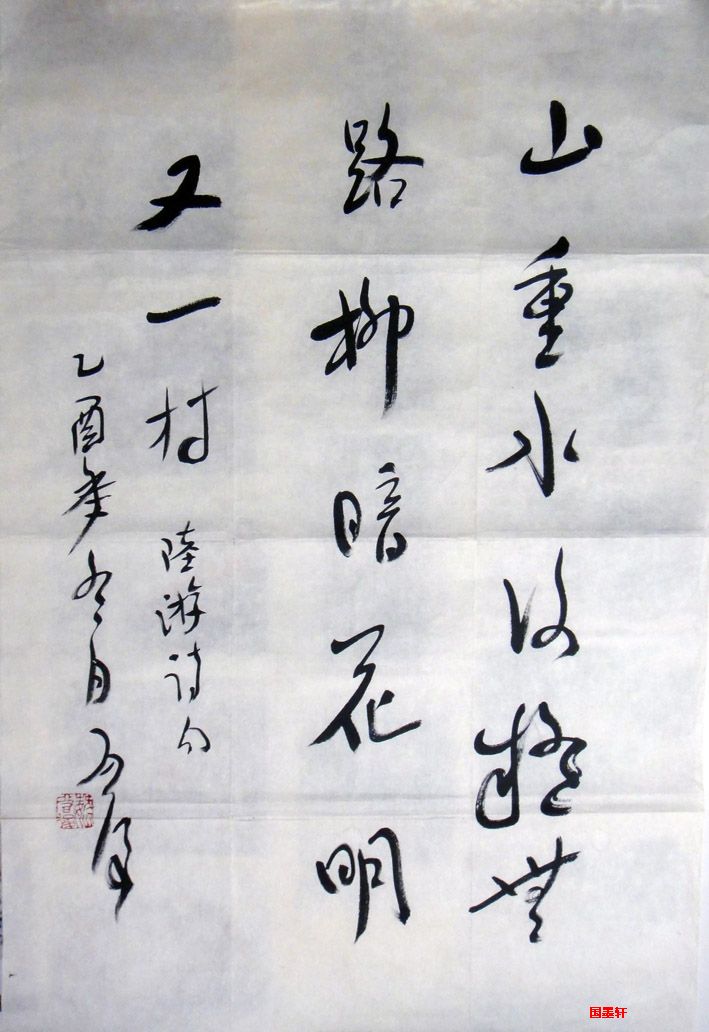 山重水複疑無
路柳暗花明
又一村
陸游诗句
乙酉年冬月
国墨轩